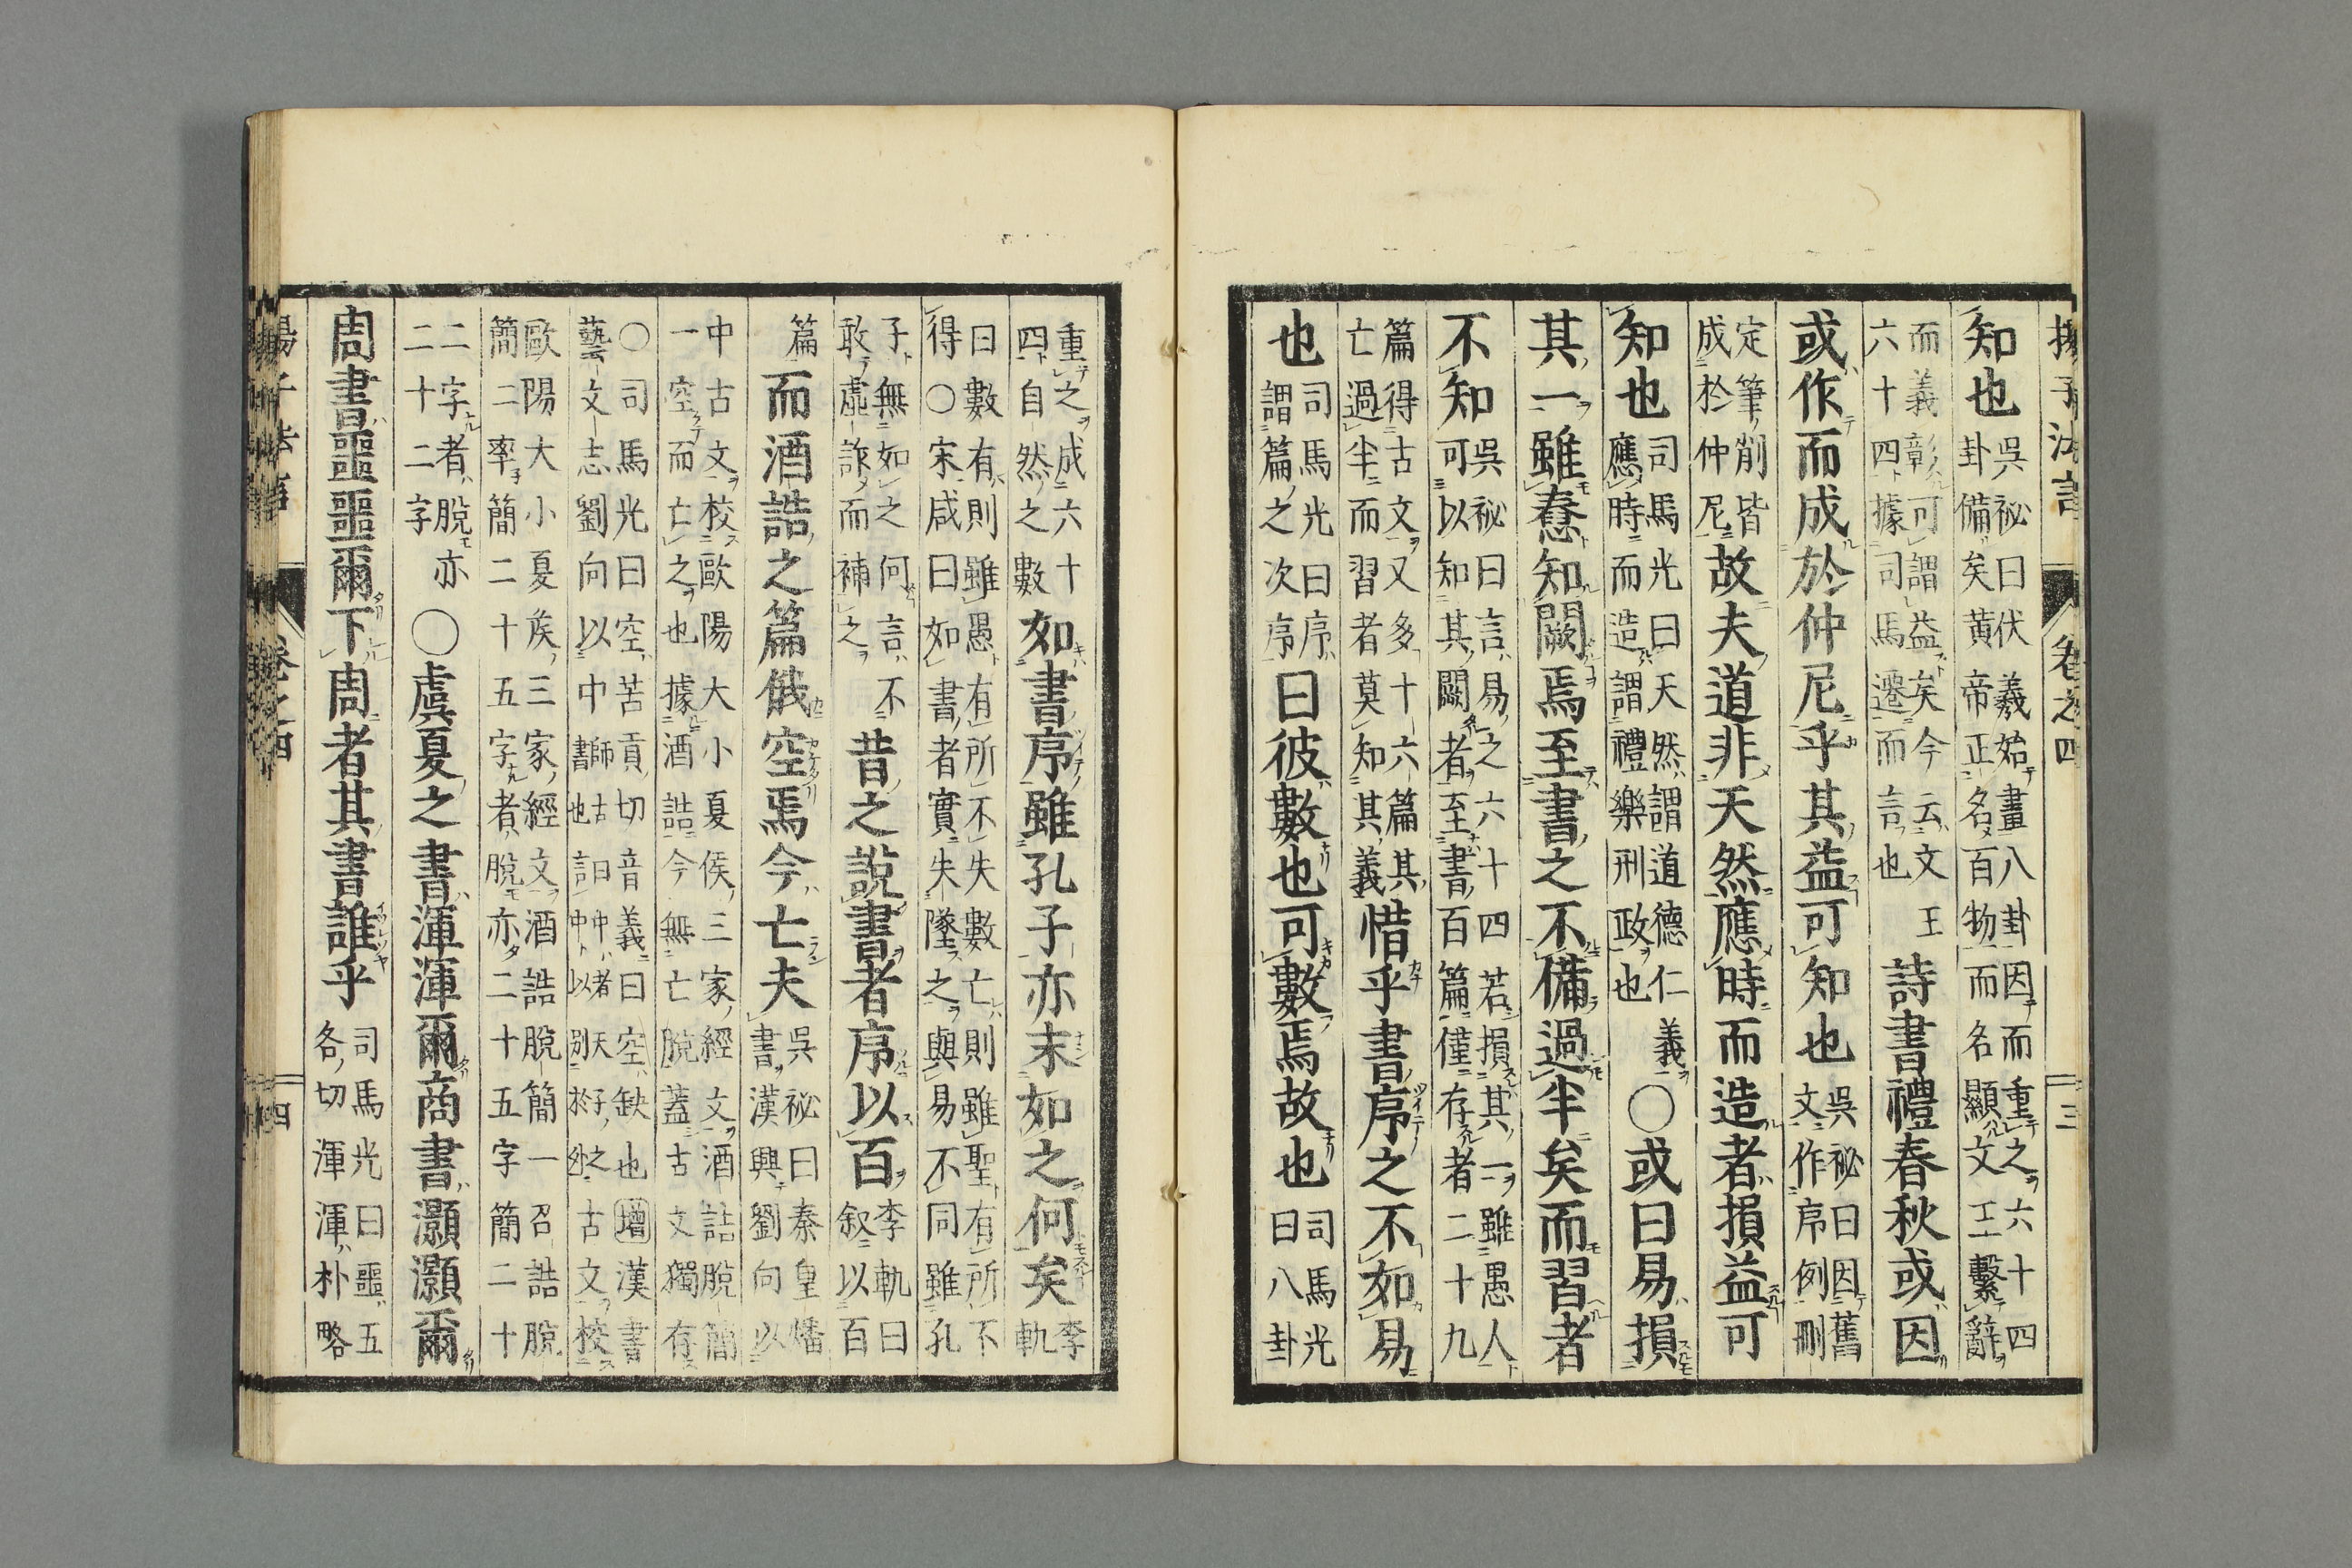 揚子法言 卷之四 三
知也吳祕曰伏羲始畫八卦因而重之六十四
卦備矣黃帝正名百物而名顯文王繫辭
而義彰可謂益矣今云文王
六十四據司馬遷而言也詩書禮春秋或因
或作而成於仲尼乎其益可知也吳祕曰因舊
文作序例刪
定筆削皆
成於仲尼故夫道非天然應時而造者損益可
知也司馬光曰天然謂道德仁義
應時而造謂禮樂刑政也○或曰易損
其一雖惷知闕焉至書之不備過半矣而習者
不知吳祕曰言易之六十四若損其一雖愚人
可以知其闕者至書百篇僅存者二十九
篇得古文又多十六篇其
亡過半而習者莫知其義惜乎書序之不如易
也司馬光曰序
謂篇之次序曰彼數也可數焉故也司馬光
曰八卦
重之成六十
四自然之數如書序雖孔子亦末如之何矣李
軌
曰數有則雖愚有所不失數亡則雖聖有所不
得○宋咸曰如書者實失墜之與易不同雖孔
子無如之何言不
敢虛誤而補之昔之說書者序以百李軌曰
敘以百
篇而酒誥之篇俄空焉今亡夫吳祕曰秦皇燔
書漢興劉向以
中古文校歐陽大小夏侯三家經文酒誥脫簡
一空而亡之也據酒誥今無亡脫蓋古文獨存
○司馬光曰空苦貢切音義曰空缺也增漢書
藝文志劉向以中師古曰中者天子之
書也言中以別於外古文校
歐陽大小夏侯三家經文酒誥脫簡一召誥脫
簡二率簡二十五字者脫亦二十五字簡二十
二字者脫亦
二十二字○虞夏之書渾渾爾商書灝灝爾
周書噩噩爾下周者其書誰乎司馬光曰噩五
各切渾渾朴略
卷之四 四